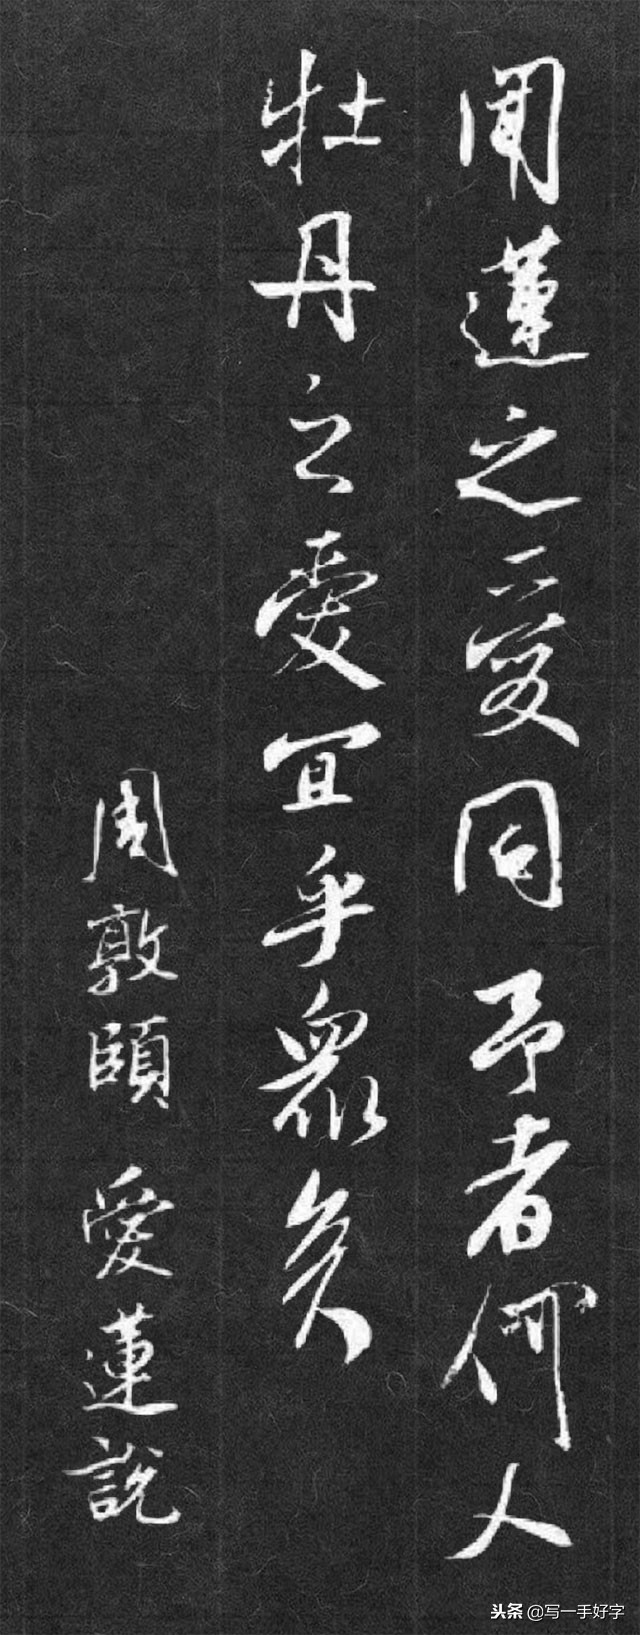 聞蓮之愛同予者何人
牡丹之愛宜乎衆矣
周敦頤 愛蓮說
头条 @写一手好字